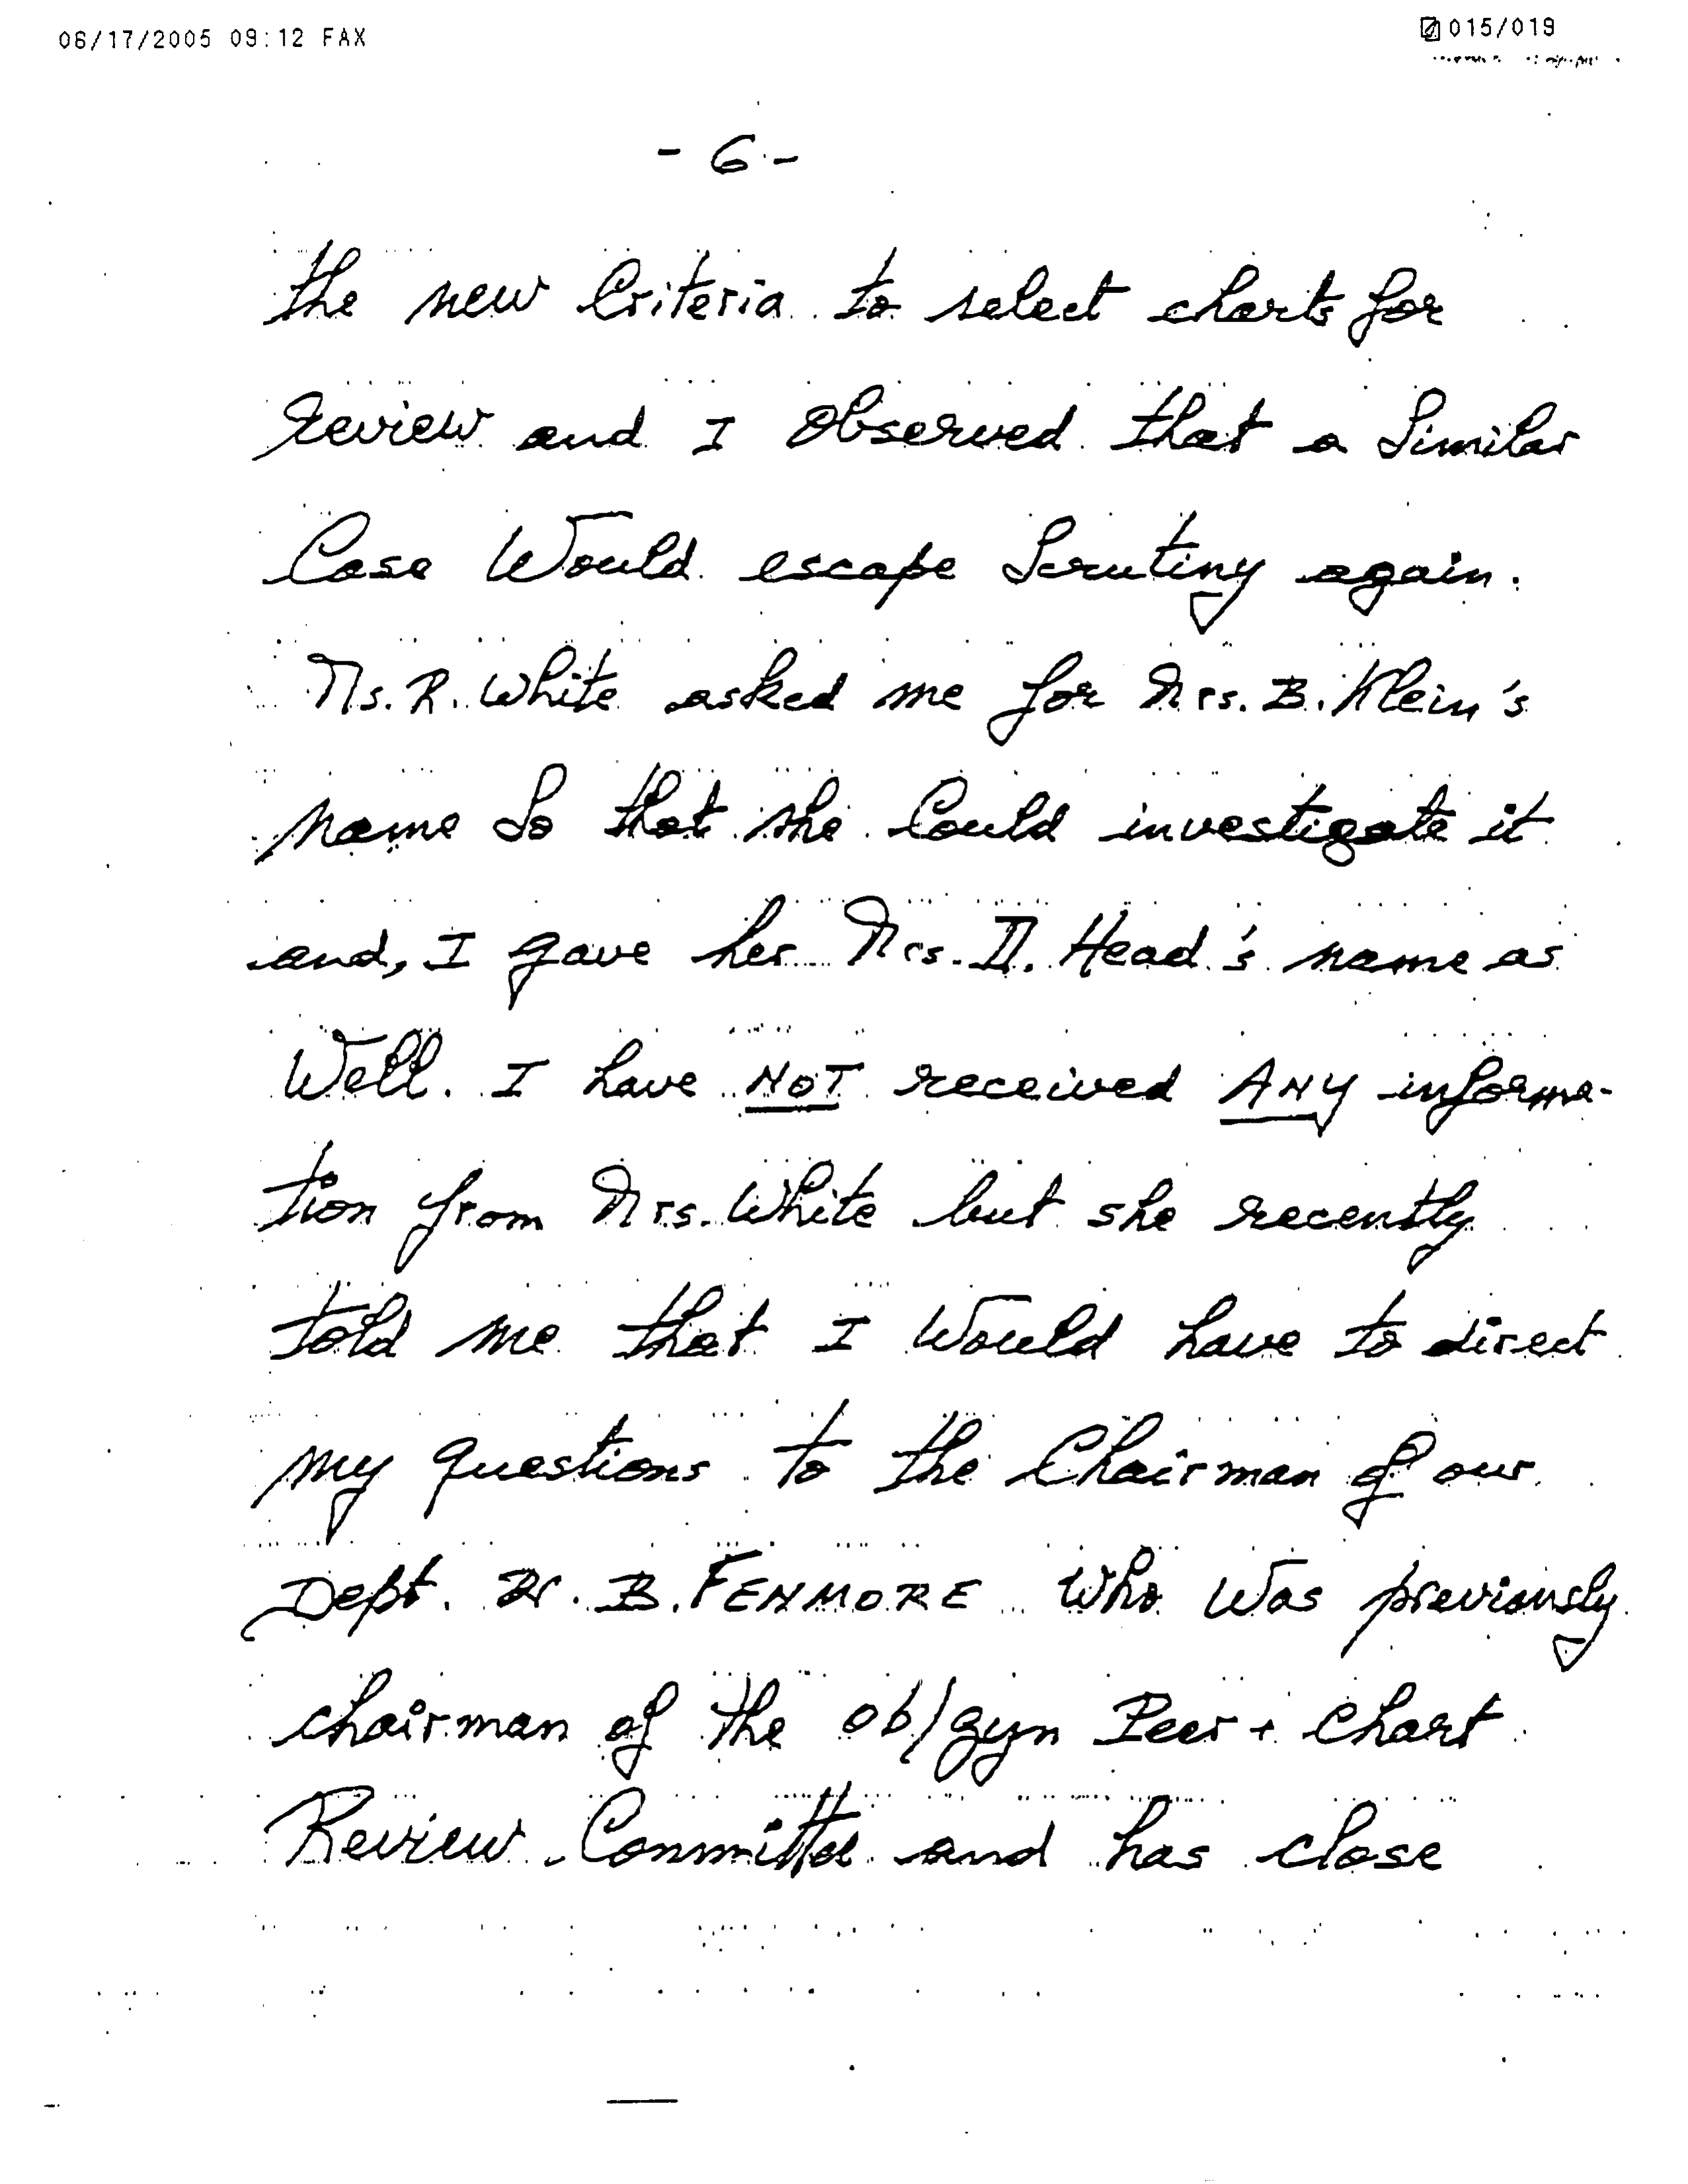 06/17/2005 09:12 FAX
015/019
- 6 -
the new Criteria to select charts for
review and I observed that a Similar
Case Would escape Scrutiny again.
Ms. R. White asked me for Mrs. B. Klein's
name So that she Could investigate it
and, I gave her Mrs. D. Head's name as
Well. I have NOT received ANY informa-
tion from Mrs. White but she recently
told me that I Would have to direct
my questions to the Chairman of our
Dept. Dr. B. FENMORE who was previously
chairman of the ob/gyn Peer + Chart
Review Committee and has close